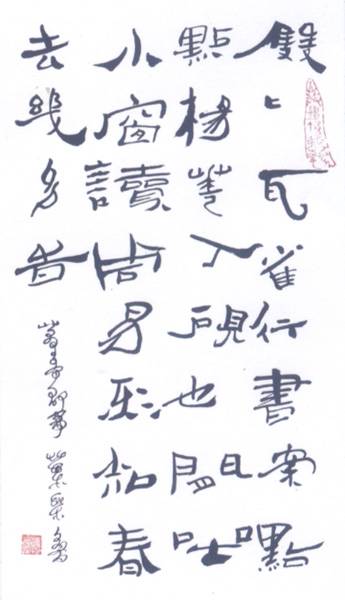 雙〻瓦雀行書案點
點楊花入硯池閒坐
小窗讀周易不知春
去幾多旹